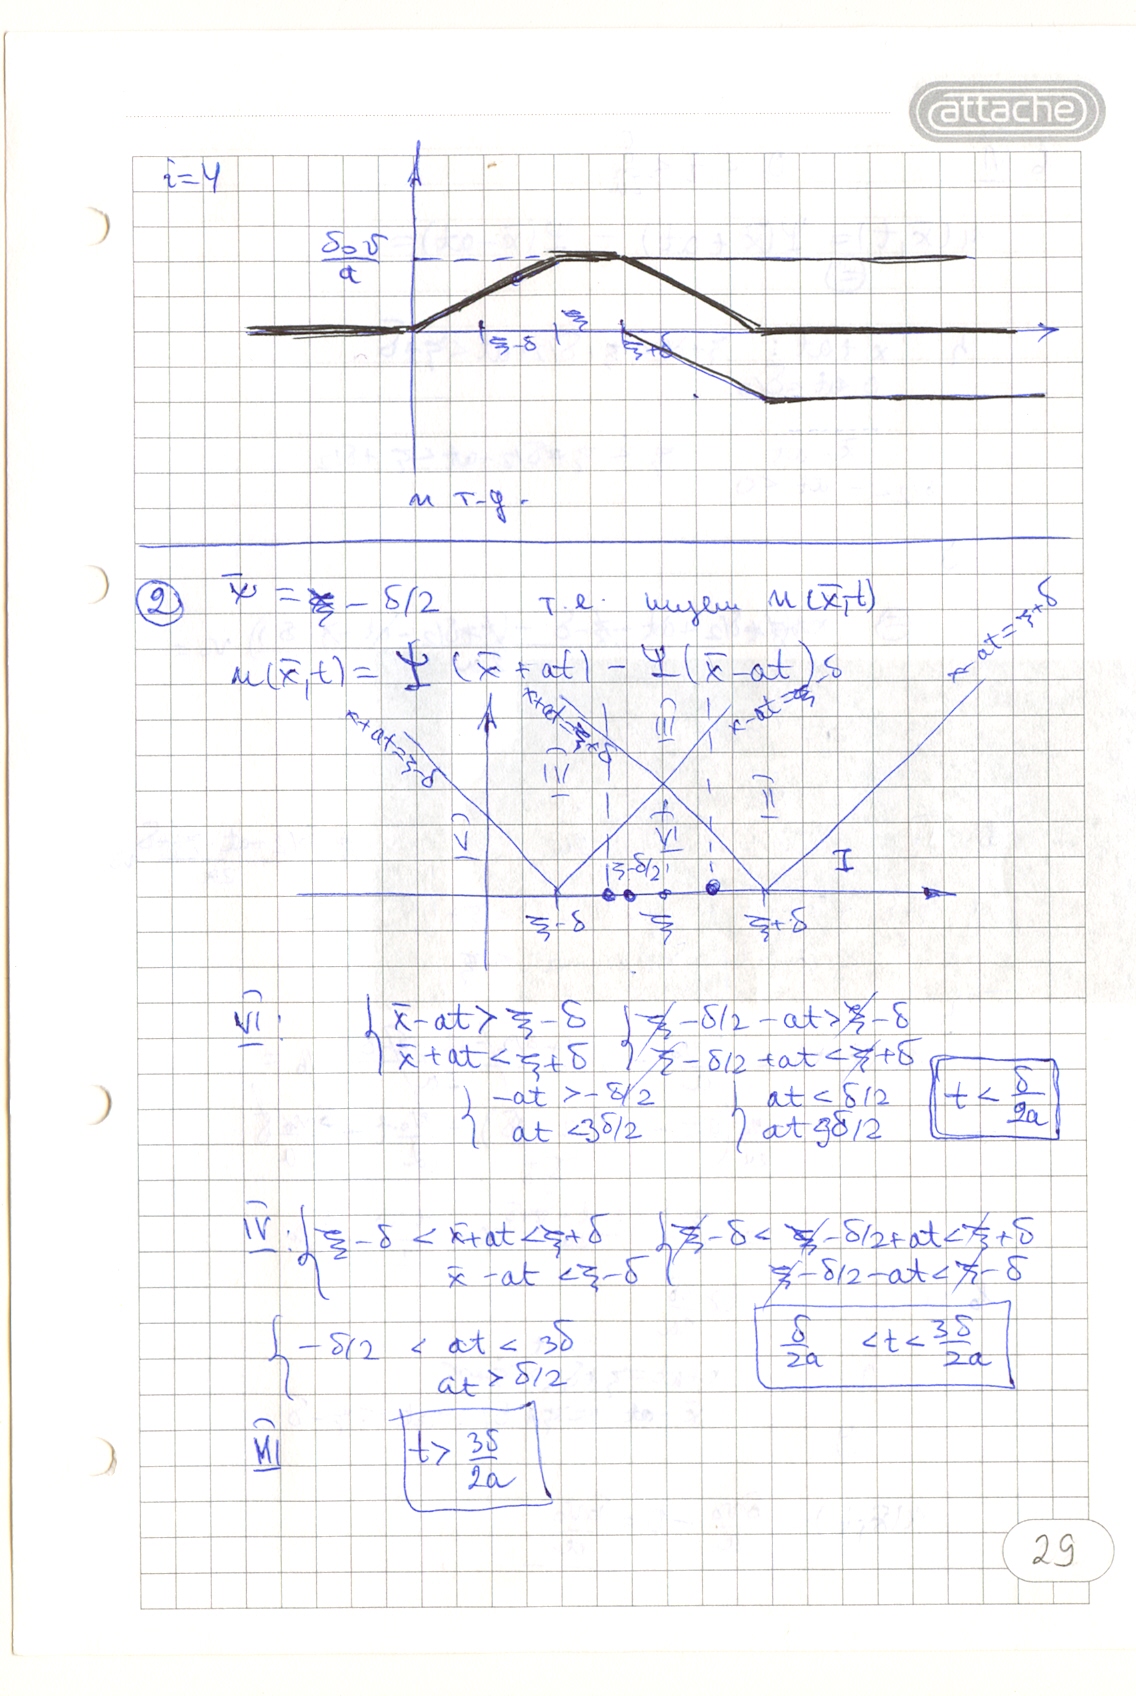 attache
i=4
δ₀v/a
ξ-δ ξ ξ+δ
и т-д.
② x̄ = ξ - δ/2 т.е. ищем u(x̄,t)
u(x̄,t) = Ψ(x̄+at) - Ψ(x̄-at)
x+at=ξ-δ x+at=ξ+δ x-at=ξ-δ x-at=ξ+δ
III
IV II
V VI I
ξ-δ/2
ξ-δ ξ ξ+δ
VI: { x̄-at > ξ-δ { ξ-δ/2-at > ξ-δ
x̄+at < ξ+δ ξ-δ/2+at < ξ+δ
{ -at > -δ/2 { at < δ/2 t < δ/2a
at < 3δ/2 at 3δ/2
IV: { ξ-δ < x̄+at < ξ+δ { ξ-δ < ξ-δ/2+at < ξ+δ
x̄-at < ξ-δ ξ-δ/2-at < ξ-δ
{ -δ/2 < at < 3δ δ/2a < t < 3δ/2a
at > δ/2
III t > 3δ/2a
29